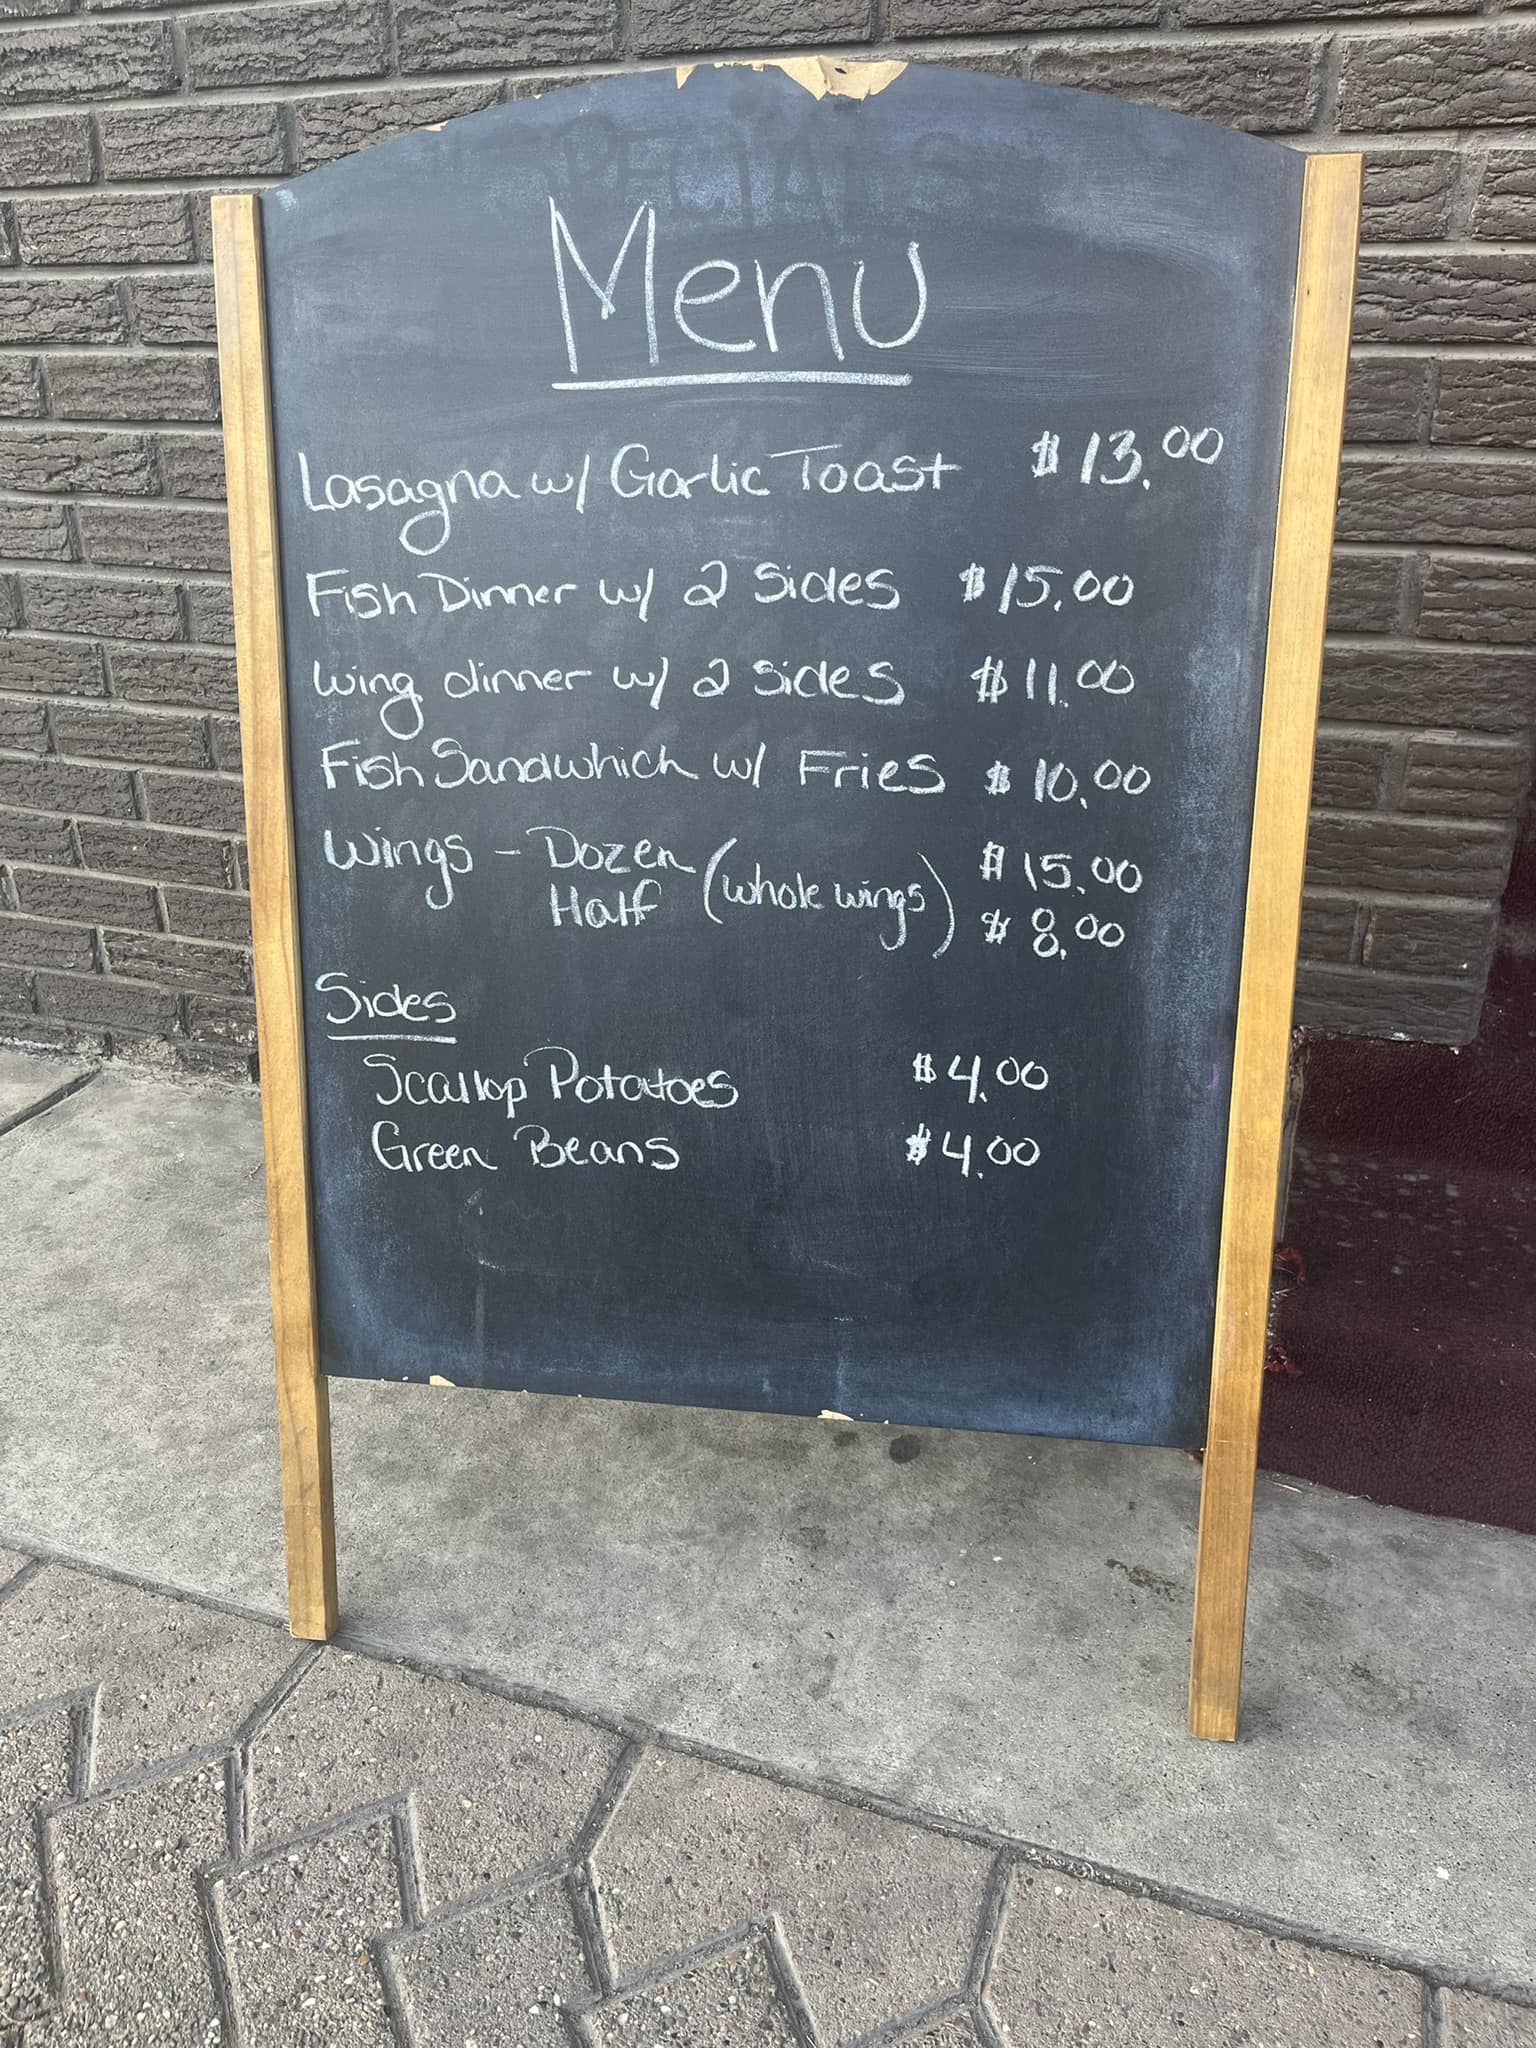 SPECIALS
Menu
Lasagna w/ Garlic Toast $13.00
Fish Dinner w/ 2 Sides $15.00
Wing dinner w/ 2 Sides $11.00
Fish Sandwhich w/ Fries $10.00
Wings - Dozen (whole wings) $15.00
Half $8.00
Sides
Scallop Potatoes $4.00
Green Beans $4.00